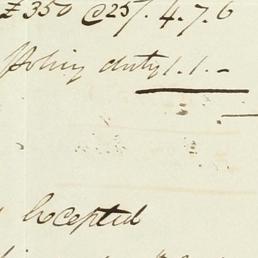 £350 @ 25/. 4.7.6
Policy duty 1.1.-
Accepted